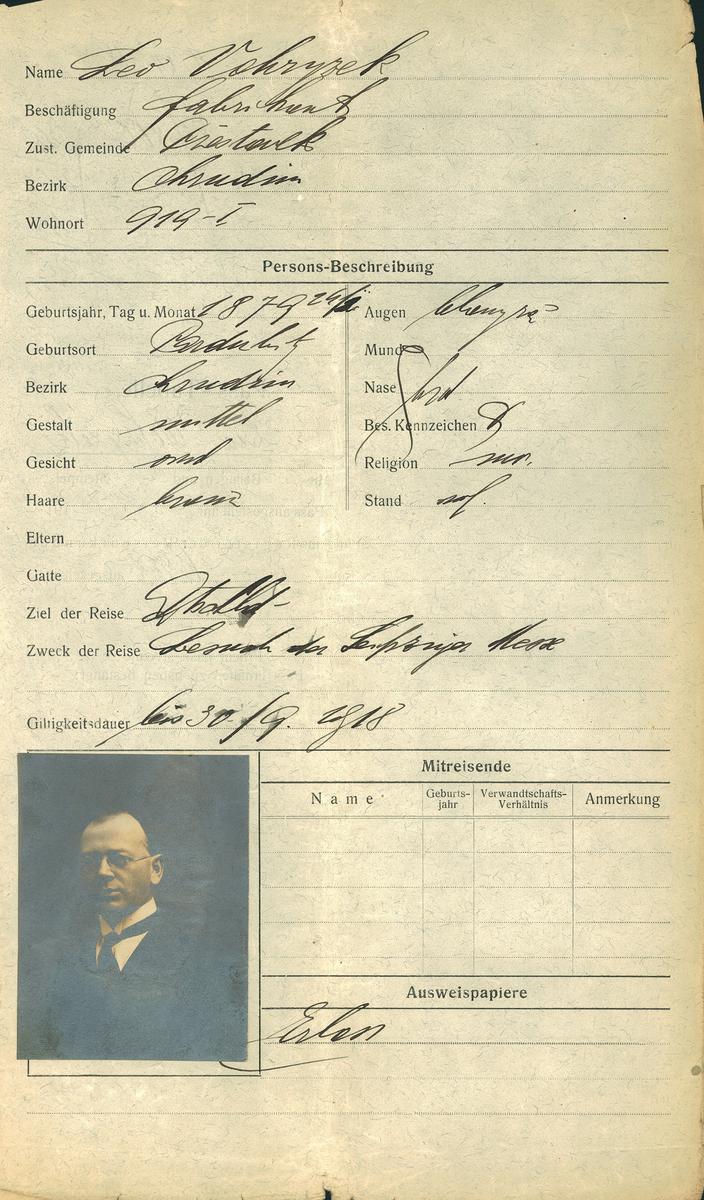 Name Leo Vohryzek
Beschäftigung Fabrikant
Zust. Gemeinde
Bezirk Chrudim
Wohnort 919-I
Persons-Beschreibung
Geburtsjahr, Tag u. Monat 1879
Geburtsort Pardubitz
Bezirk Chrudim
Gestalt mittel
Gesicht oval
Haare braun
Augen
Mund
Nase
Bes. Kennzeichen
Religion mos.
Stand
Eltern
Gatte
Ziel der Reise
Zweck der Reise Besuch der Leipziger Messe
Giltigkeitsdauer bis 30./9. 1918
Mitreisende
Name
Geburts-
jahr
Verwandtschafts-
Verhältnis
Anmerkung
Ausweispapiere